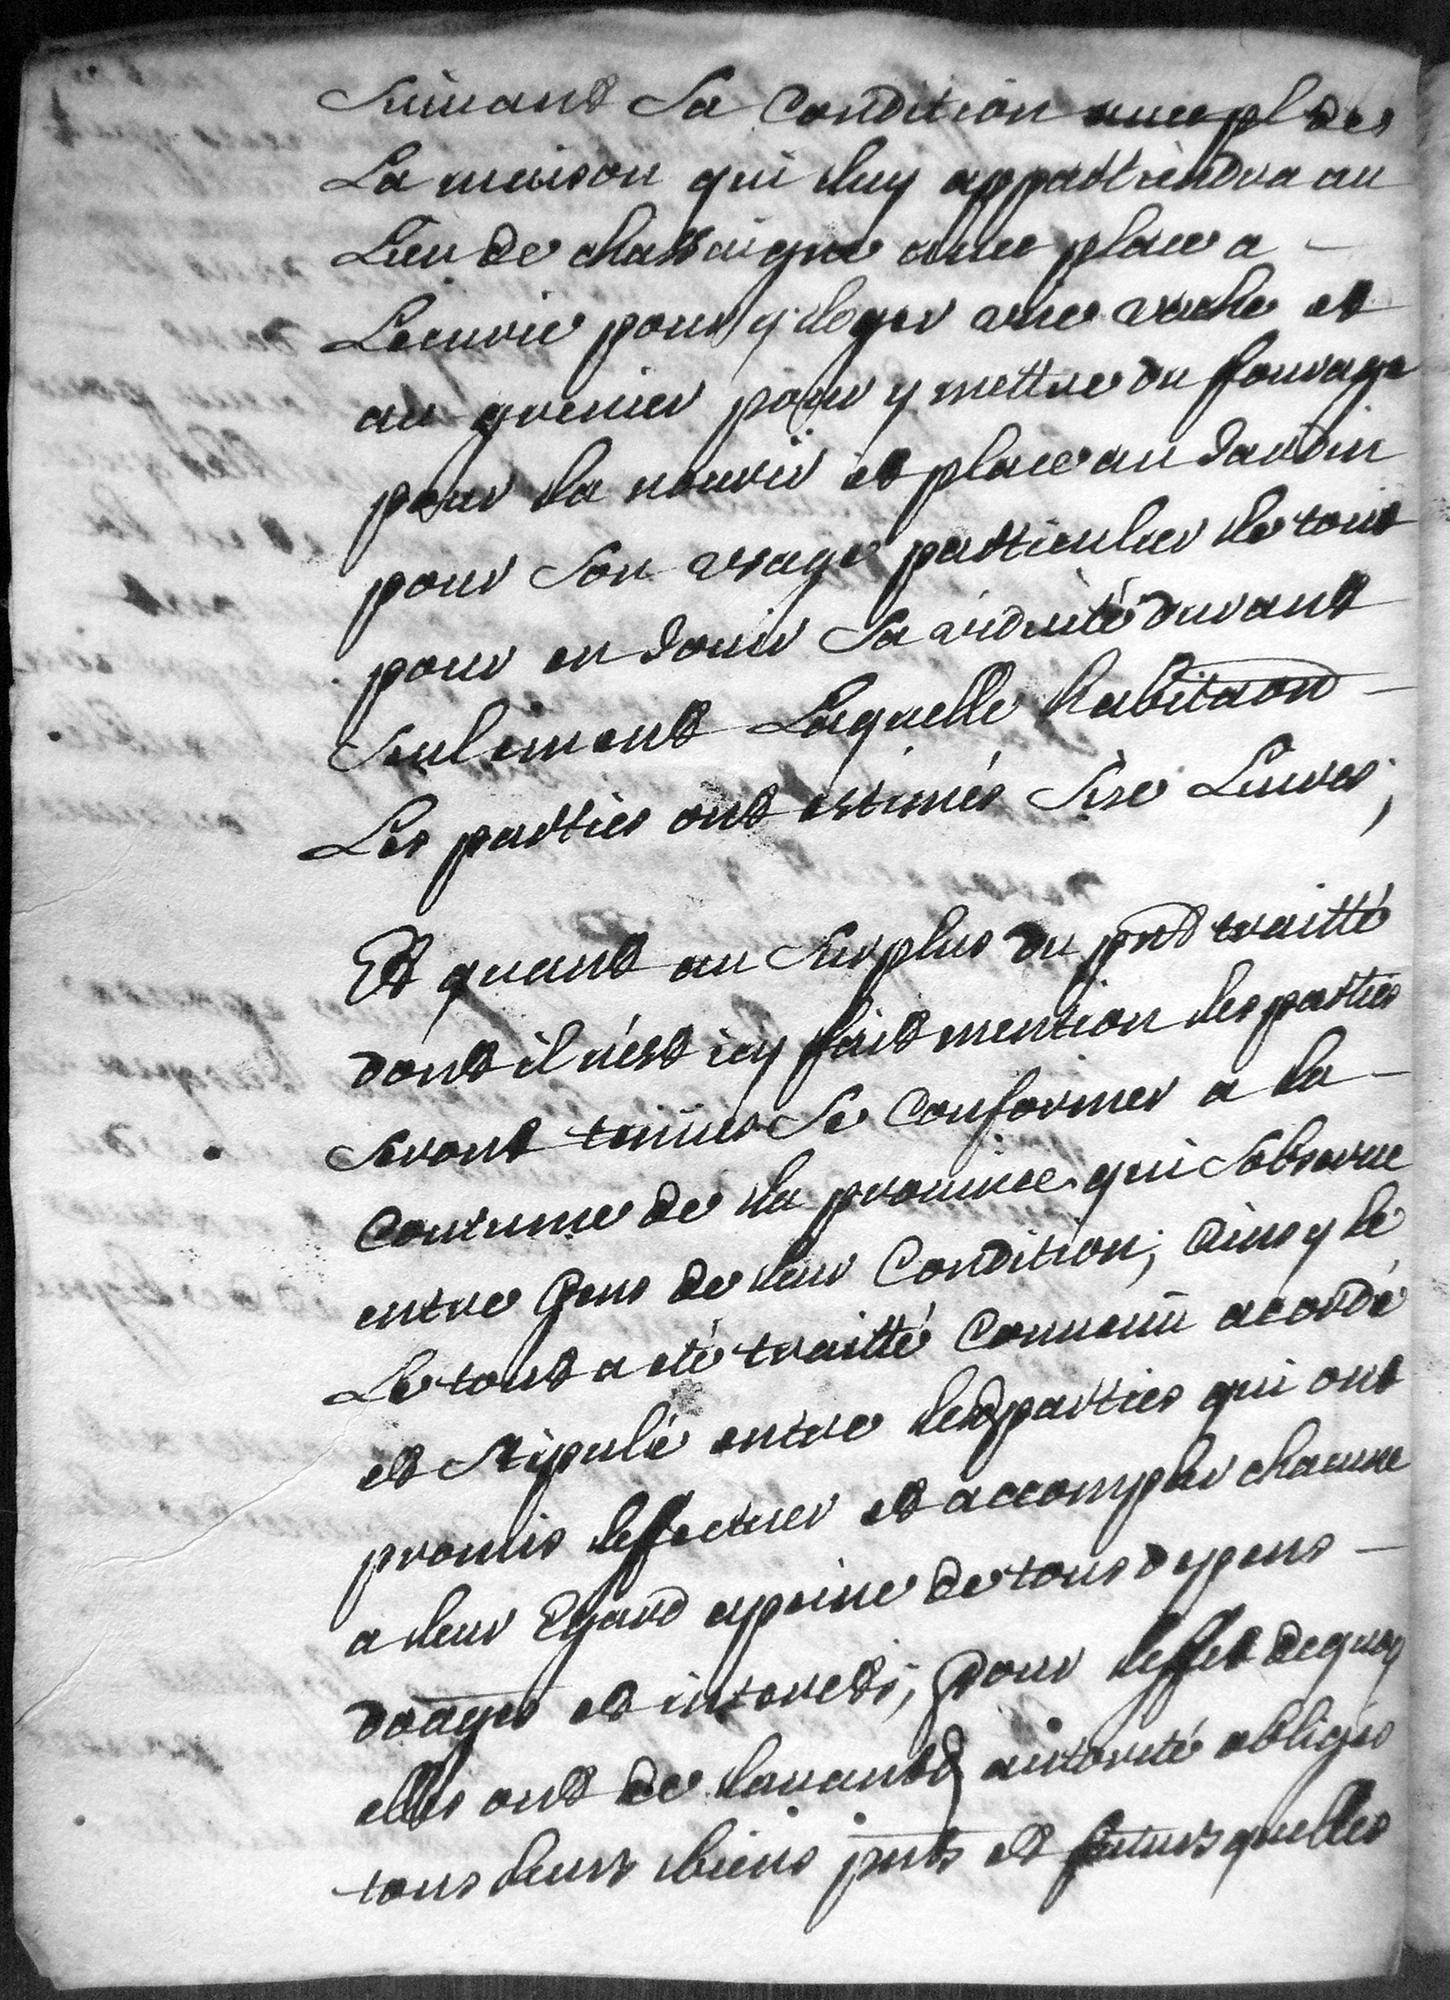 suivant sa condition avec pl des
La maison qui luy appartiendra au
Lieu de chassaigne avec place a
Lecurie pour y loger une vache et
au grenier pour y mettre du fourage
pour la nourir et place au Jardin
pour son usage particulier le tout
pour en Jouir sa viduité durant
seulement Laquelle habitaon
Les parties ont estimés sise Livres,
Et quant au surplus du pnt traitté
dont il nest icy fait mention les parties
seront tenües se conformer a la
coutume de la province qui sobserve
entre gens de leur condition, ainsy le
Le tout a été traitté convenü acordé
et stipulé entre lesd parties qui ont
promis leffectuer et accomplir chacune
a leur Egard a peine de tous depens
doages et interets; pour leffet de quoy
elles ont de lavantd autorité obligés
tous leurs biens pnts et futurs quelles